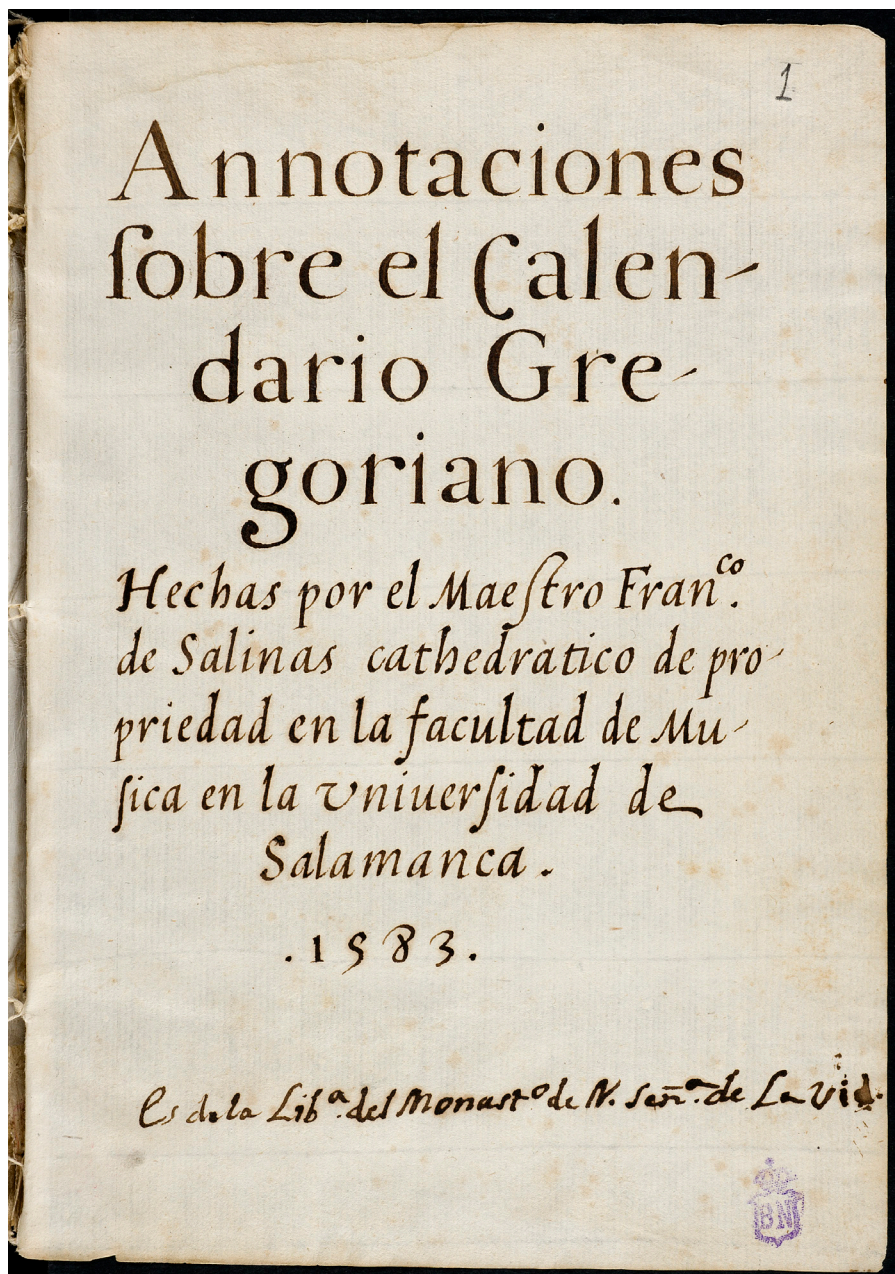 1
Annotaciones
ſobre el Calen-
dario Gre-
goriano.
Hechas por el Maeſtro Fran.co
de Salinas cathedratico de pro-
priedad en la facultad de Mu-
ſica en la Vniuerſidad de
Salamanca.
.1583.
Es de la Libª. del Monastº de N. Señª. de La Vid.
BN